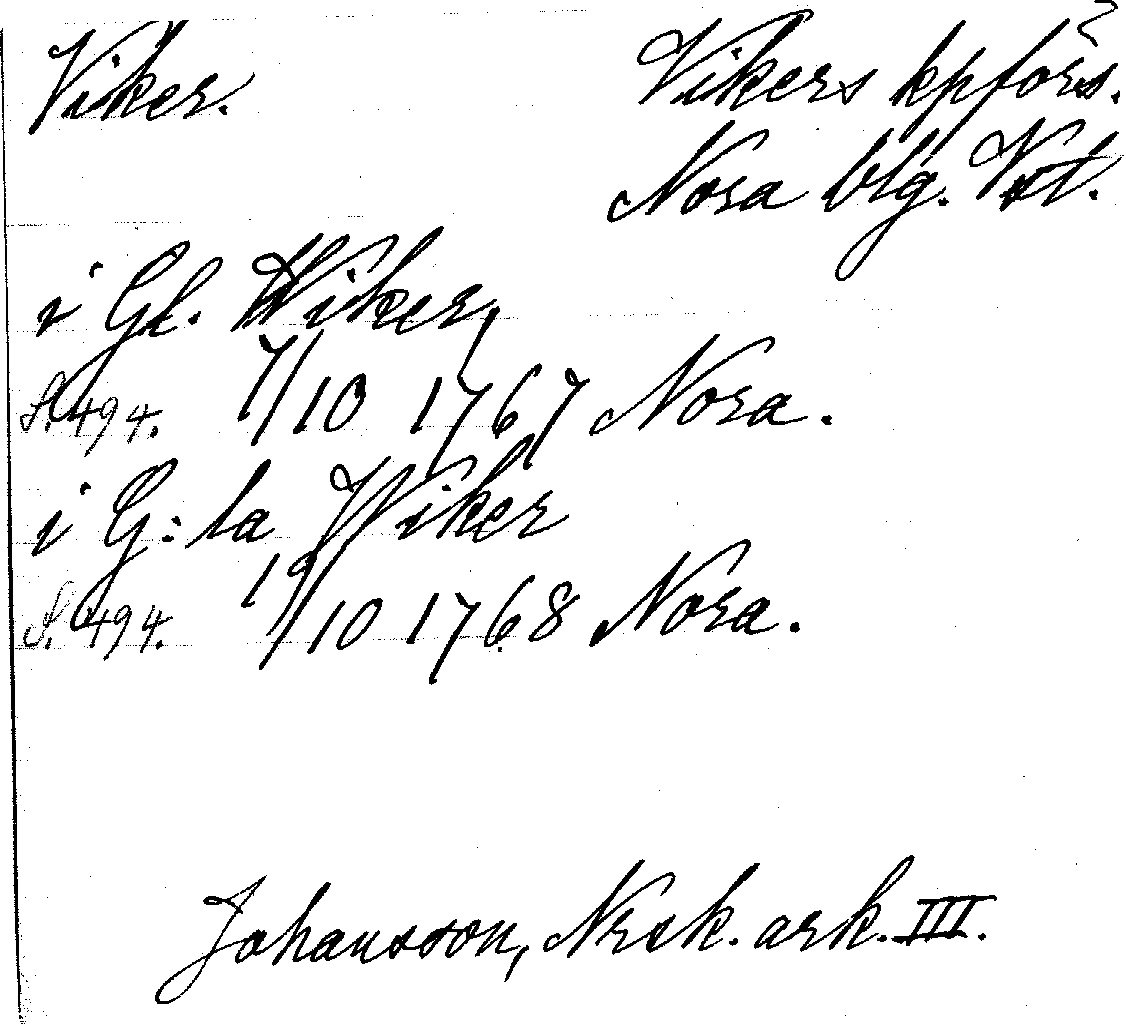 Viker.
Vikers kpförs.
Nora blg. Vstml.
i Gl. Wiker,
S. 494. 7/10 1767 Nora.
i G:la Wiker
S. 494. 19/10 1768 Nora.
Johansson, Nrsk. ark. III.